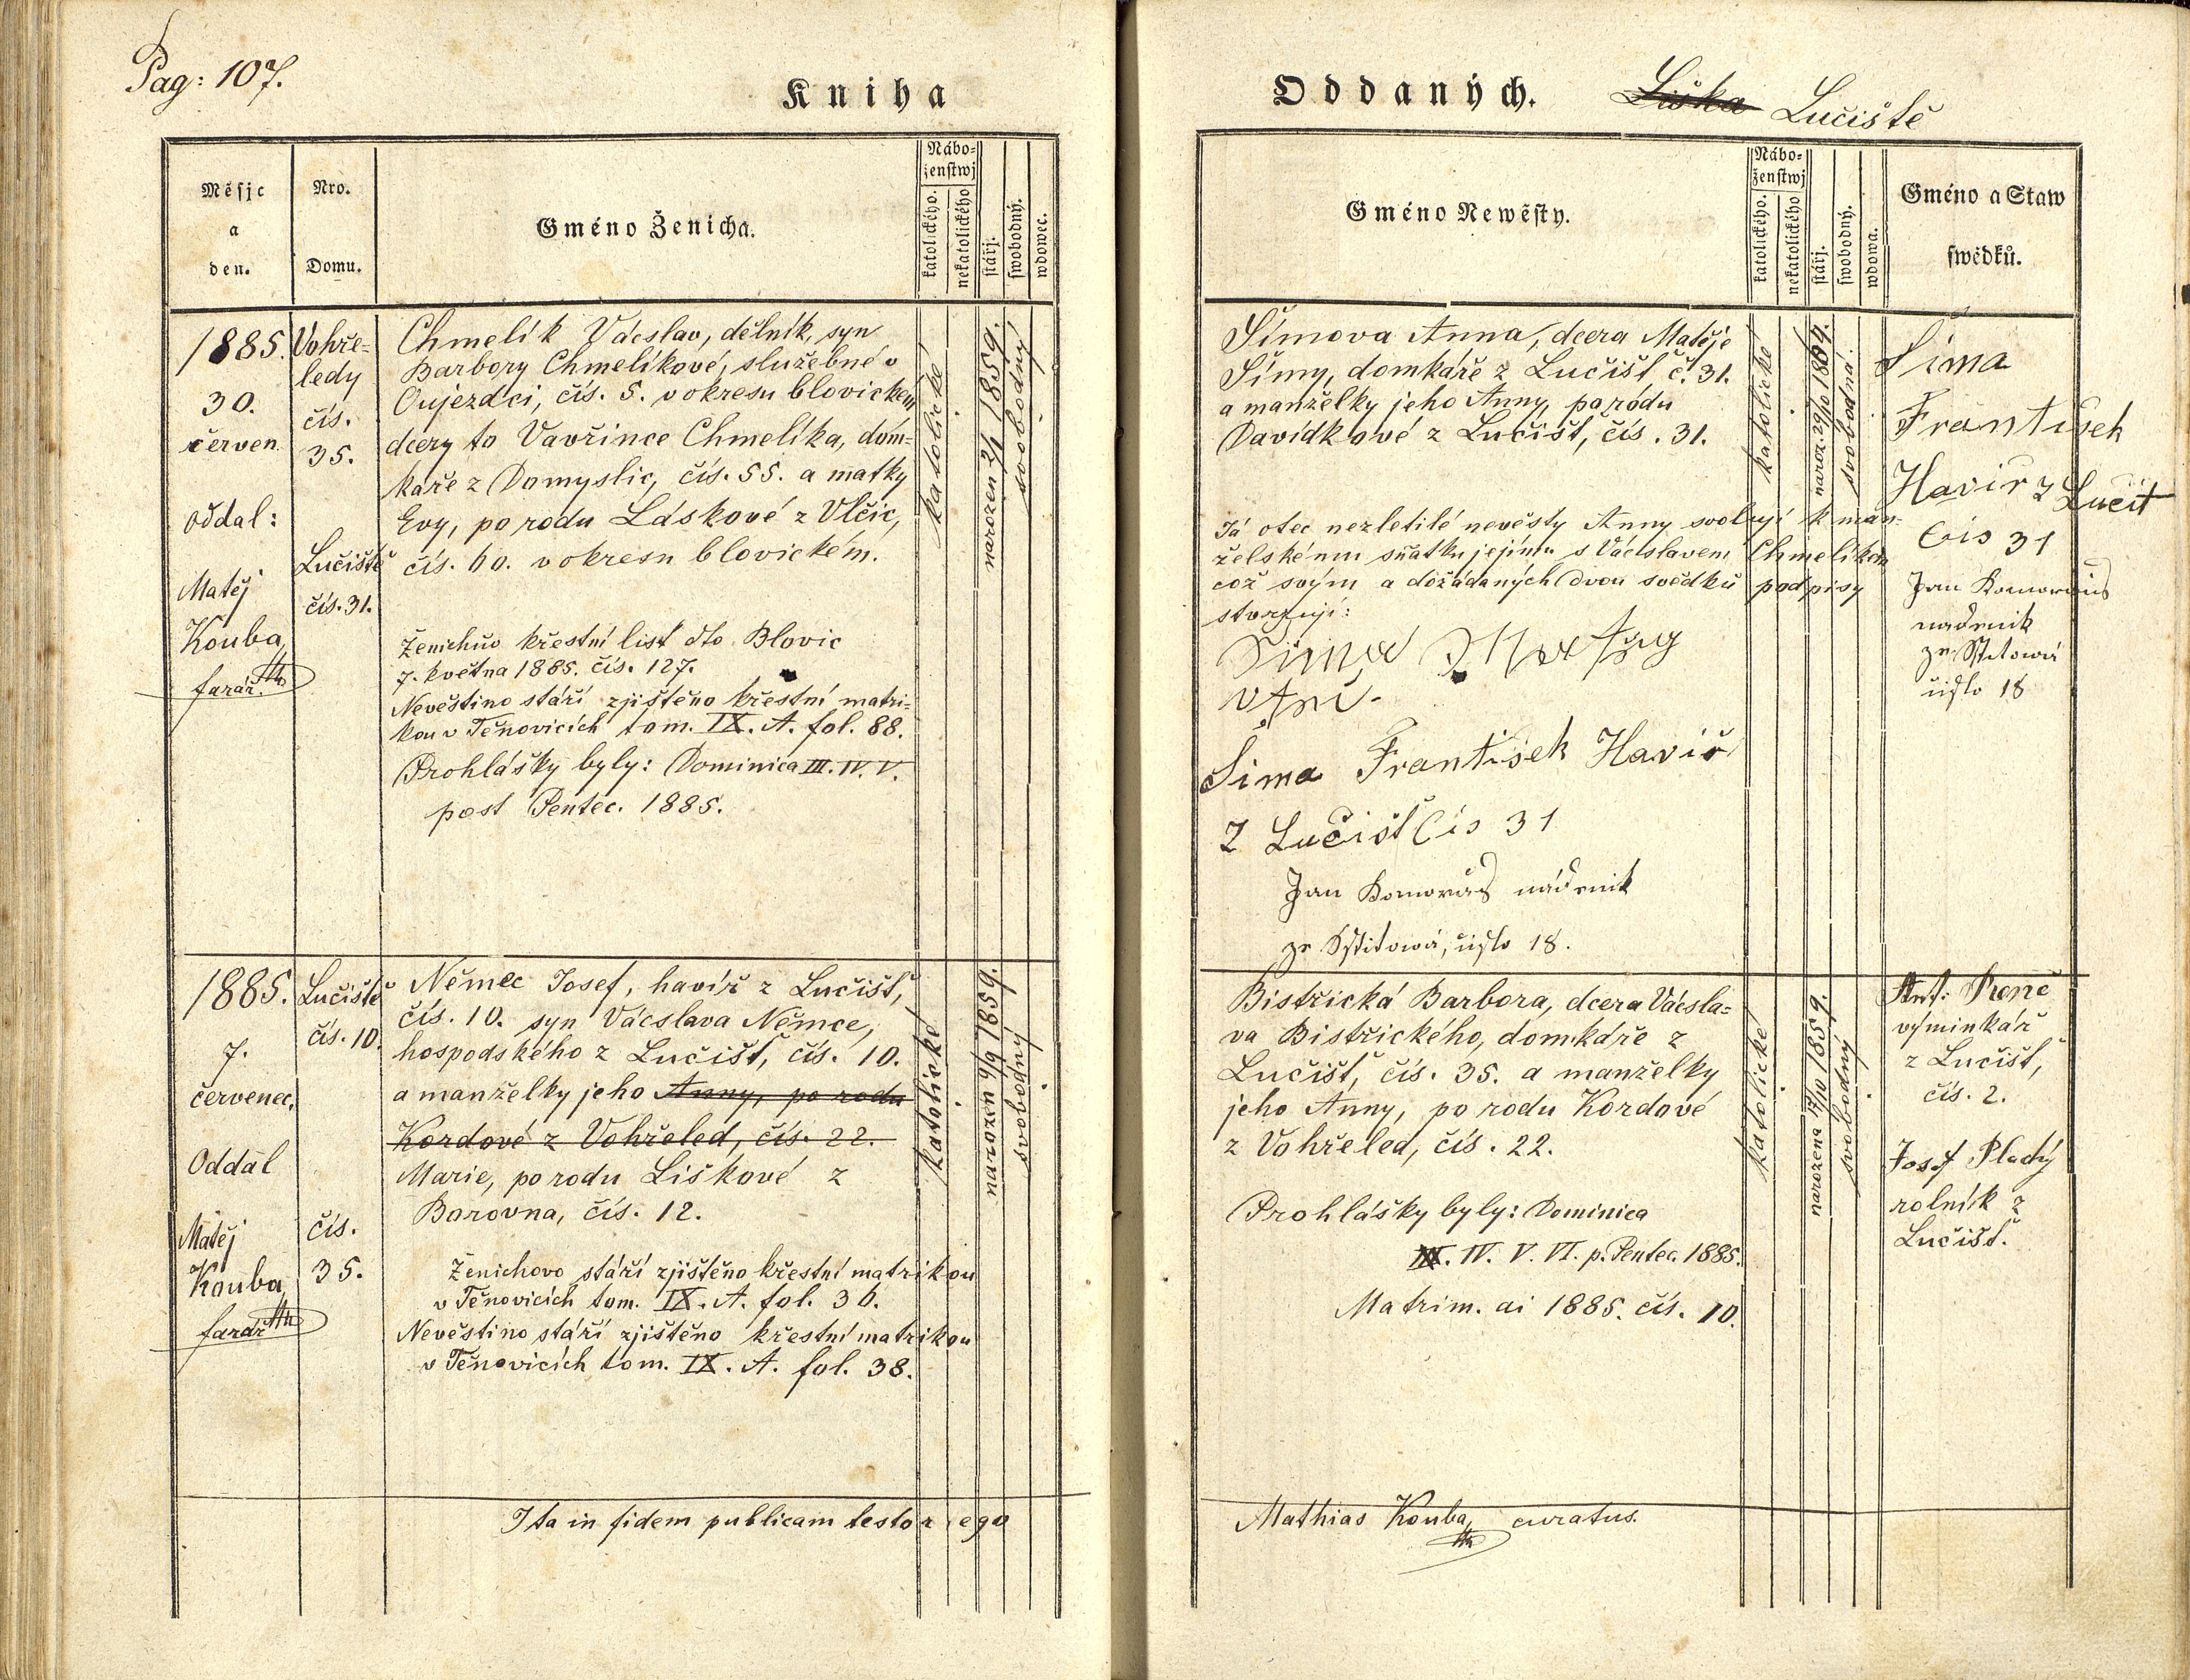 Pag: 107.
Kniha
Měsjc
a
den.
Nro.
Domu.
Gméno Ženicha.
Nábo-
ženstwj
katolického.
nekatolického
stářj.
swobodný.
wdowec.
1885.
30.
červen
oddal:
Matěj
Kouba,
farář
Vohře-
ledy
čís.
35.
Lučiště
čís. 31.
Chmelík Vácslav, dělník, syn
Barbory Chmelíkové, služebné v
Oujezdci, čís. 5. v okresu blovickém
dcery to Vavřince Chmelíka, dom-
káře z Domyslic, čís. 55. a matky
Evy, po rodu Láskové z Vlčic,
čís. 60. v okresu blovickém.
Ženichův křestní list dto Blovic
7. května 1885. čís. 127.
Nevěstino stáří zjištěno křestní matri-
kou v Těnovicích tom. IX. A. fol. 88.
Prohlášky byly: Dominica III. IV. V.
post Pentec. 1885.
katolické
narozen 2/1 1859.
svobodný
1885.
7.
červenec,
Oddal
Matěj
Kouba,
farář
Lučiště
čís. 10.
čís.
35.
Němec Josef, havíř z Lučišť,
čís. 10. syn Vácslava Němce,
hospodského z Lučišť, čís. 10.
a manželky jeho Anny, po rodu
Kordové z Vohřeled, čís. 22.
Marie, po rodu Liškové z
Borovna, čís. 12.
Ženichovo stáří zjištěno křestní matrikou
v Těnovicích tom. IX. A. fol. 36.
Nevěstino stáří zjištěno křestní matrikou
v Těnovicích tom. IX. A. fol. 38.
katolické
narozen 9/9 1859.
svobodný
Ita in fidem publicam testor ego
Oddaných.
Liška Lučiště
Gméno Newěsty.
Nábo-
ženstwj
katolického.
nekatolického
stářj.
swobodný.
wdowa.
Gméno a Staw
swědků.
Šímova Anna, dcera Matěje
Šímy, domkáře z Lučišť č. 31.
a manželky jeho Anny, po rodu
Davídkové z Lučišť, čís. 31.
Já otec nezletilé nevěsty Anny svoluji k man-
želskému sňatku jejímu s Vácslavem Chmelíkem
což svým a dožádaných dvou svědků podpisy
stvrzuji:
Sima František Havíř
Z Lučišť Čís 31
Jan Komorous nádeník
ze Sstitowa, číslo 18.
katolické
naroz. 29/10 1864.
svobodná.
Sima
František
Havíř z Lučit
Čís 31
Jan Komorous
nádenik
ze Sstitowa
číslo 18
Bistřická Barbora, dcera Vácsla-
va Bistřického, domkáře z
Lučišť, čís. 35. a manželky
jeho Anny, po rodu Kordové
z Vohřeled, čís. 22.
Prohlášky byly: Dominica
III. IV. V. VI. p. Pentec. 1885.
Matrim. ai 1885. čís. 10.
katolické
narozena 17/10 1859.
svobodný
Ant:
výminkář
z Lučišť,
čís. 2.
Josef Pladý
rolník z
Lučišť.
Mathias Kouba, curatus.